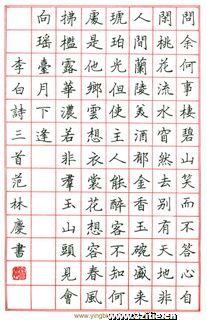 問余何事棲碧山笑而不答心自
閑桃花流水窅然去別有天地非
人間蘭陵美酒郁金香玉碗盛來
琥珀光但使主人能醉客不知何
處是他鄉雲想衣裳花想容春風
拂檻露華濃若非羣玉山頭見會
向瑤臺月下逢
李白詩三首范林慶書